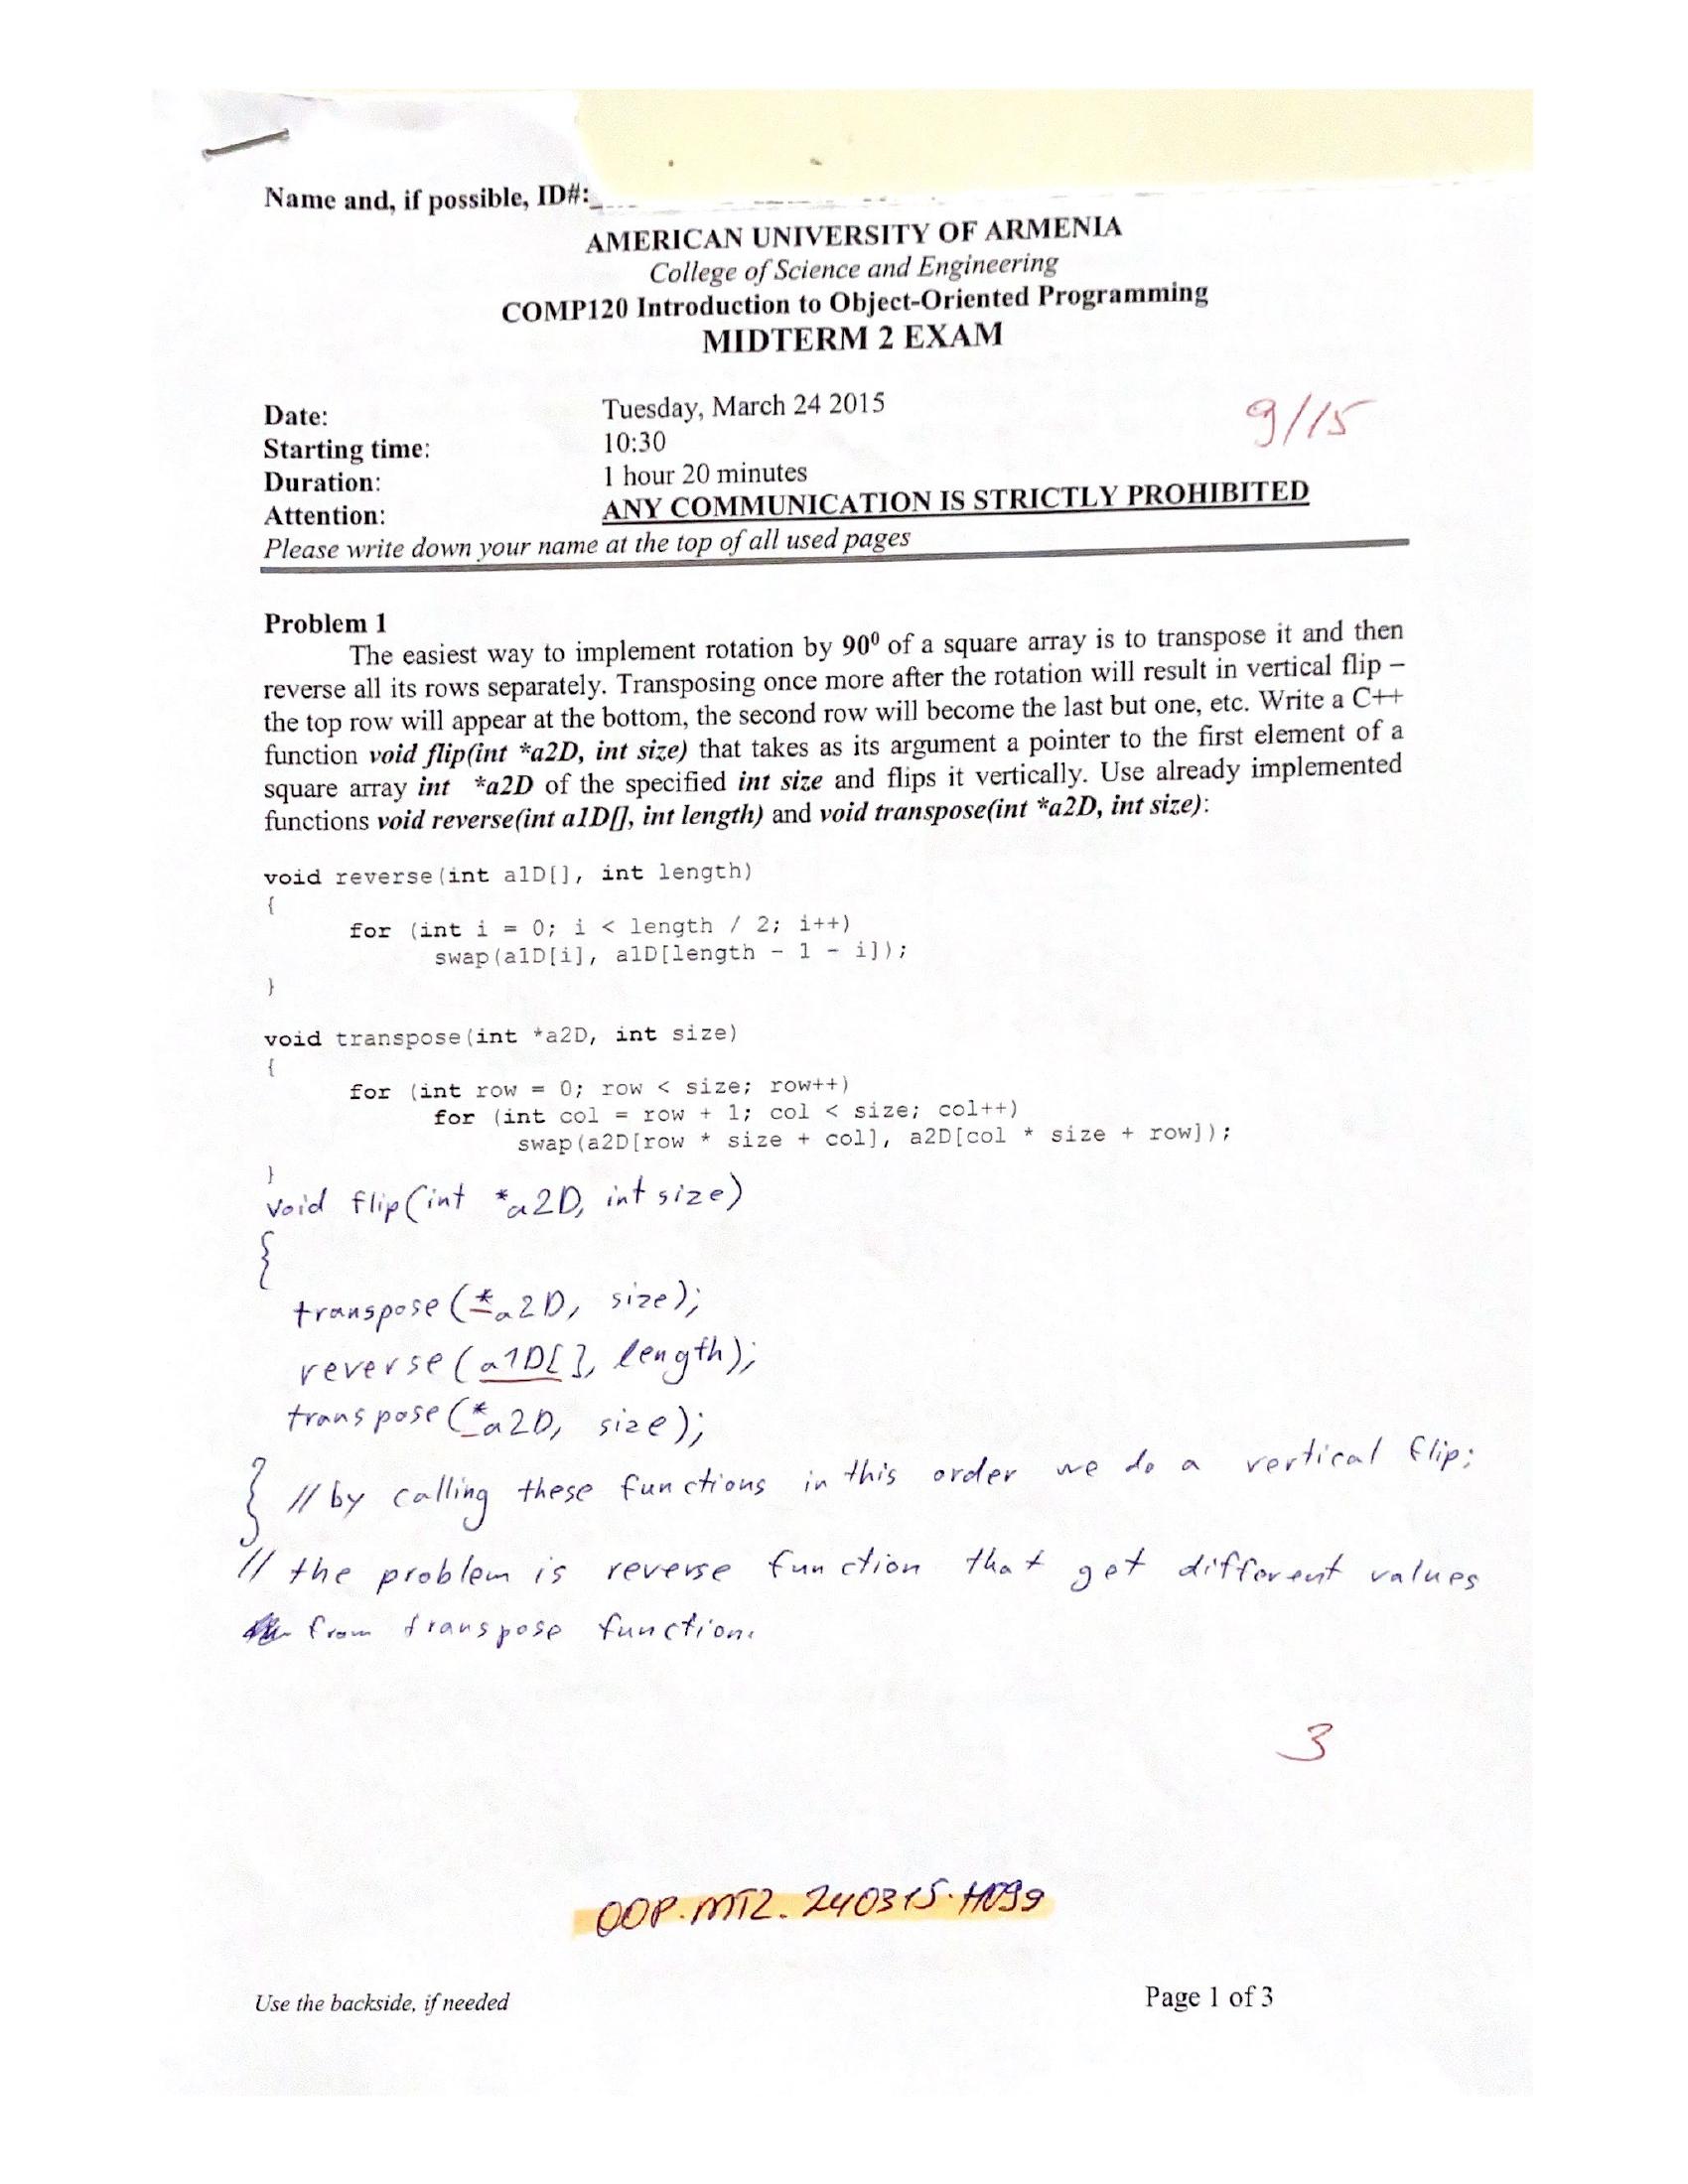 Name and, if possible, ID#:
AMERICAN UNIVERSITY OF ARMENIA
College of Science and Engineering
COMP120 Introduction to Object-Oriented Programming
MIDTERM 2 EXAM
Date: Tuesday, March 24 2015
9/15
Starting time: 10:30
Duration: 1 hour 20 minutes
Attention: ANY COMMUNICATION IS STRICTLY PROHIBITED
Please write down your name at the top of all used pages
Problem 1
The easiest way to implement rotation by 90⁰ of a square array is to transpose it and then
reverse all its rows separately. Transposing once more after the rotation will result in vertical flip –
the top row will appear at the bottom, the second row will become the last but one, etc. Write a C++
function void flip(int *a2D, int size) that takes as its argument a pointer to the first element of a
square array int *a2D of the specified int size and flips it vertically. Use already implemented
functions void reverse(int a1D[], int length) and void transpose(int *a2D, int size):
void reverse(int a1D[], int length)
{
for (int i = 0; i < length / 2; i++)
swap(a1D[i], a1D[length - 1 - i]);
}
void transpose(int *a2D, int size)
{
for (int row = 0; row < size; row++)
for (int col = row + 1; col < size; col++)
swap(a2D[row * size + col], a2D[col * size + row]);
}
void flip(int *a2D, int size)
{
transpose(*a2D, size);
reverse(a1D[], length);
transpose(*a2D, size);
} // by calling these functions in this order we do a vertical flip;
// the problem is reverse function that get different values
from transpose function.
3
OOP.MT2.240315.H099
Use the backside, if needed
Page 1 of 3